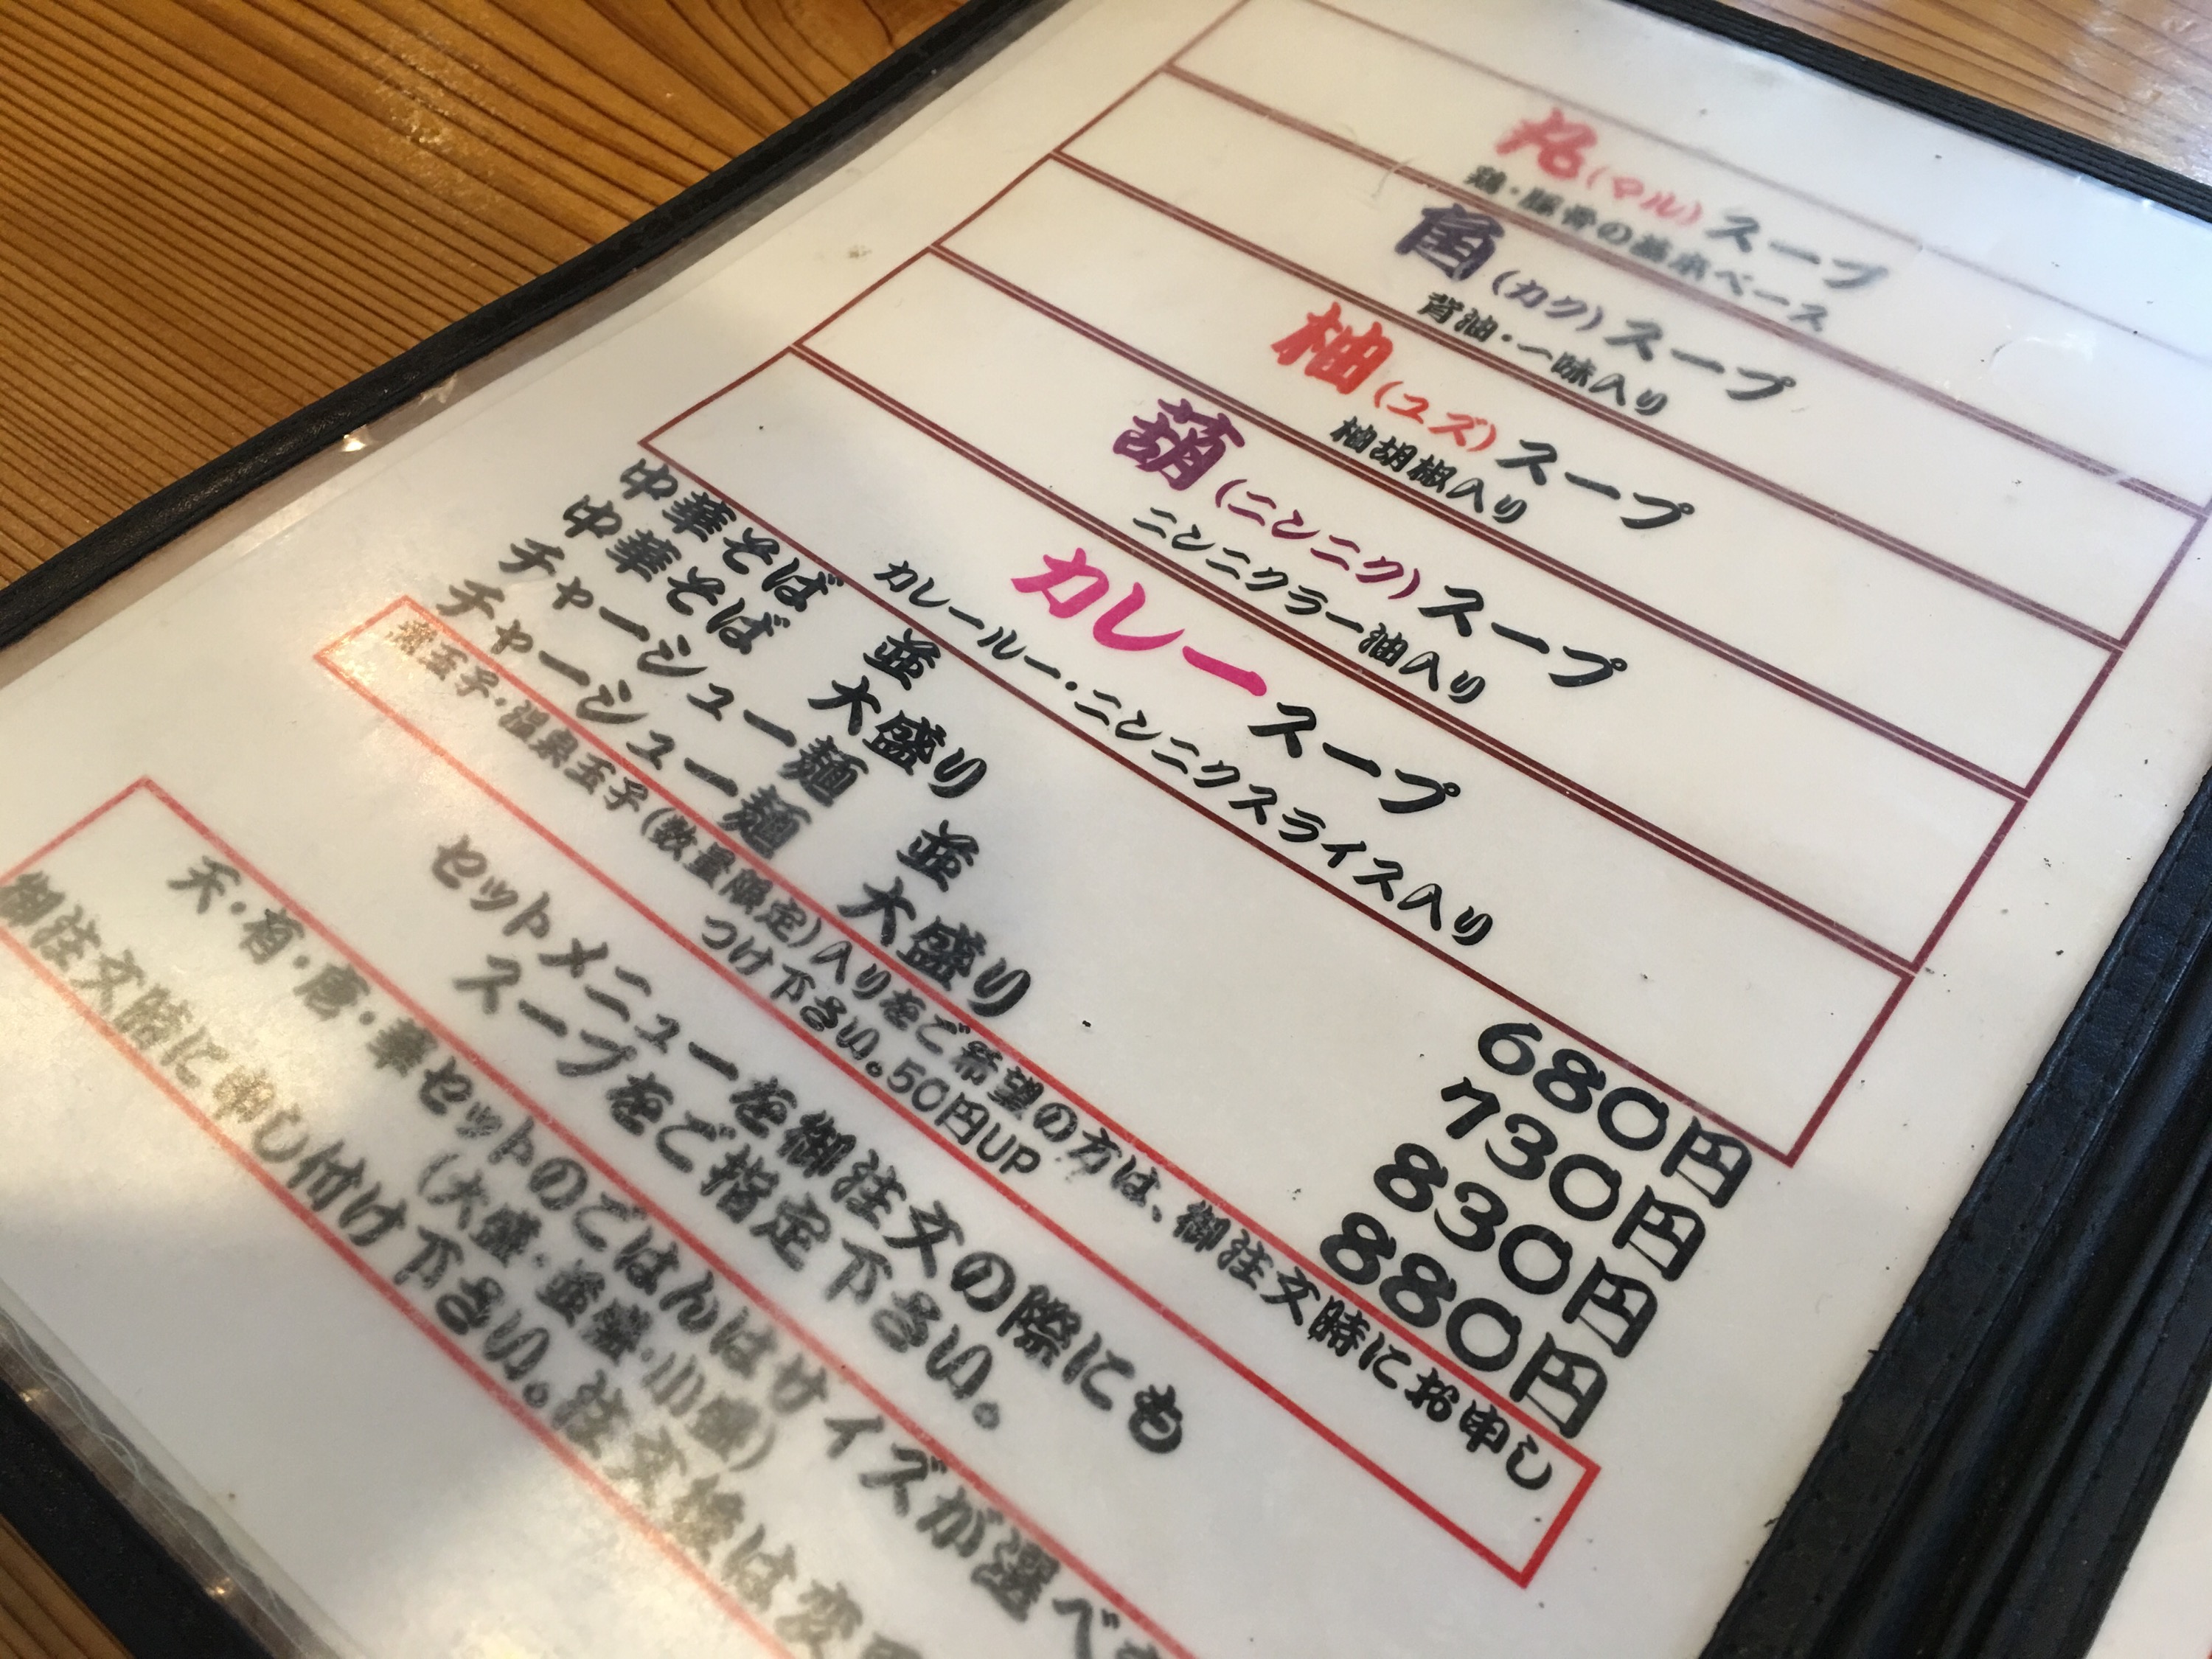 (マル)スープ
鶏・豚骨の基本ベース
角(カク)スープ
背油・一味入り
柚(ユズ)スープ
柚胡椒入り
葫(ニンニク)スープ
ニンニクラー油入り
カレースープ
カレールー・ニンニクスライス入り
中華そば 並 680円
中華そば 大盛り 730円
チャーシュー麺 並 830円
チャーシュー麺 大盛り 880円
煮玉子・温泉玉子(数量限定)入りをご希望の方は、御注文時にお申し
つけ下さい。50円UP
セットメニューを御注文の際にも
スープをご指定下さい。
天・有・唐・華セットのごはんはサイズが選べ
(大盛・並盛・小盛)
御注文時に申し付け下さい。注文後は変